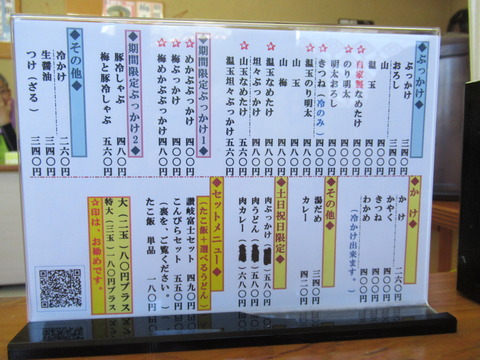 ◆ぶっかけ◆
ぶっかけ 三四〇円
おろし 三四〇円
山 三八〇円
温玉
☆自家製なめたけ
☆のり明太
明太おろし
☆きつね(冷のみ)
温玉のり明太 四八〇円
山梅 四八〇円
☆温玉なめたけ
☆坦々ぶっかけ
☆山玉なめたけ 五六〇円
温玉坦々ぶっかけ 五六〇円
◆期間限定ぶっかけ1◆
☆めかぶぶっかけ 四〇〇円
☆梅ぶっかけ 四〇〇円
☆梅めかぶぶっかけ 四八〇円
◆期間限定ぶっかけ2◆
豚冷しゃぶ 四八〇円
梅と豚冷しゃぶ 五六〇円
◆その他◆
冷かけ 二六〇円
生醤油 三四〇円
つけ(ざる) 三四〇円
◆かけ◆
かけ 二六〇円
かやく
きつね
わかめ
(冷かけ出来ます。)
◆その他◆
湯だめ 三四〇円
カレー 四二〇円
◆土日祝日限定◆
肉ぶっかけ 五八〇円
肉うどん 五八〇円
肉カレー 六八〇円
◆セットメニュー◆
(たこ飯+選べるうどん)
讃岐富士セット 四九〇円
こんぴらセット 五五〇円
(裏を、ご覧ください。)
たこ飯 単品 一八〇円
大(二玉)八〇円プラス
特大(三玉)一八〇円プラス
☆印は、お勧めです。